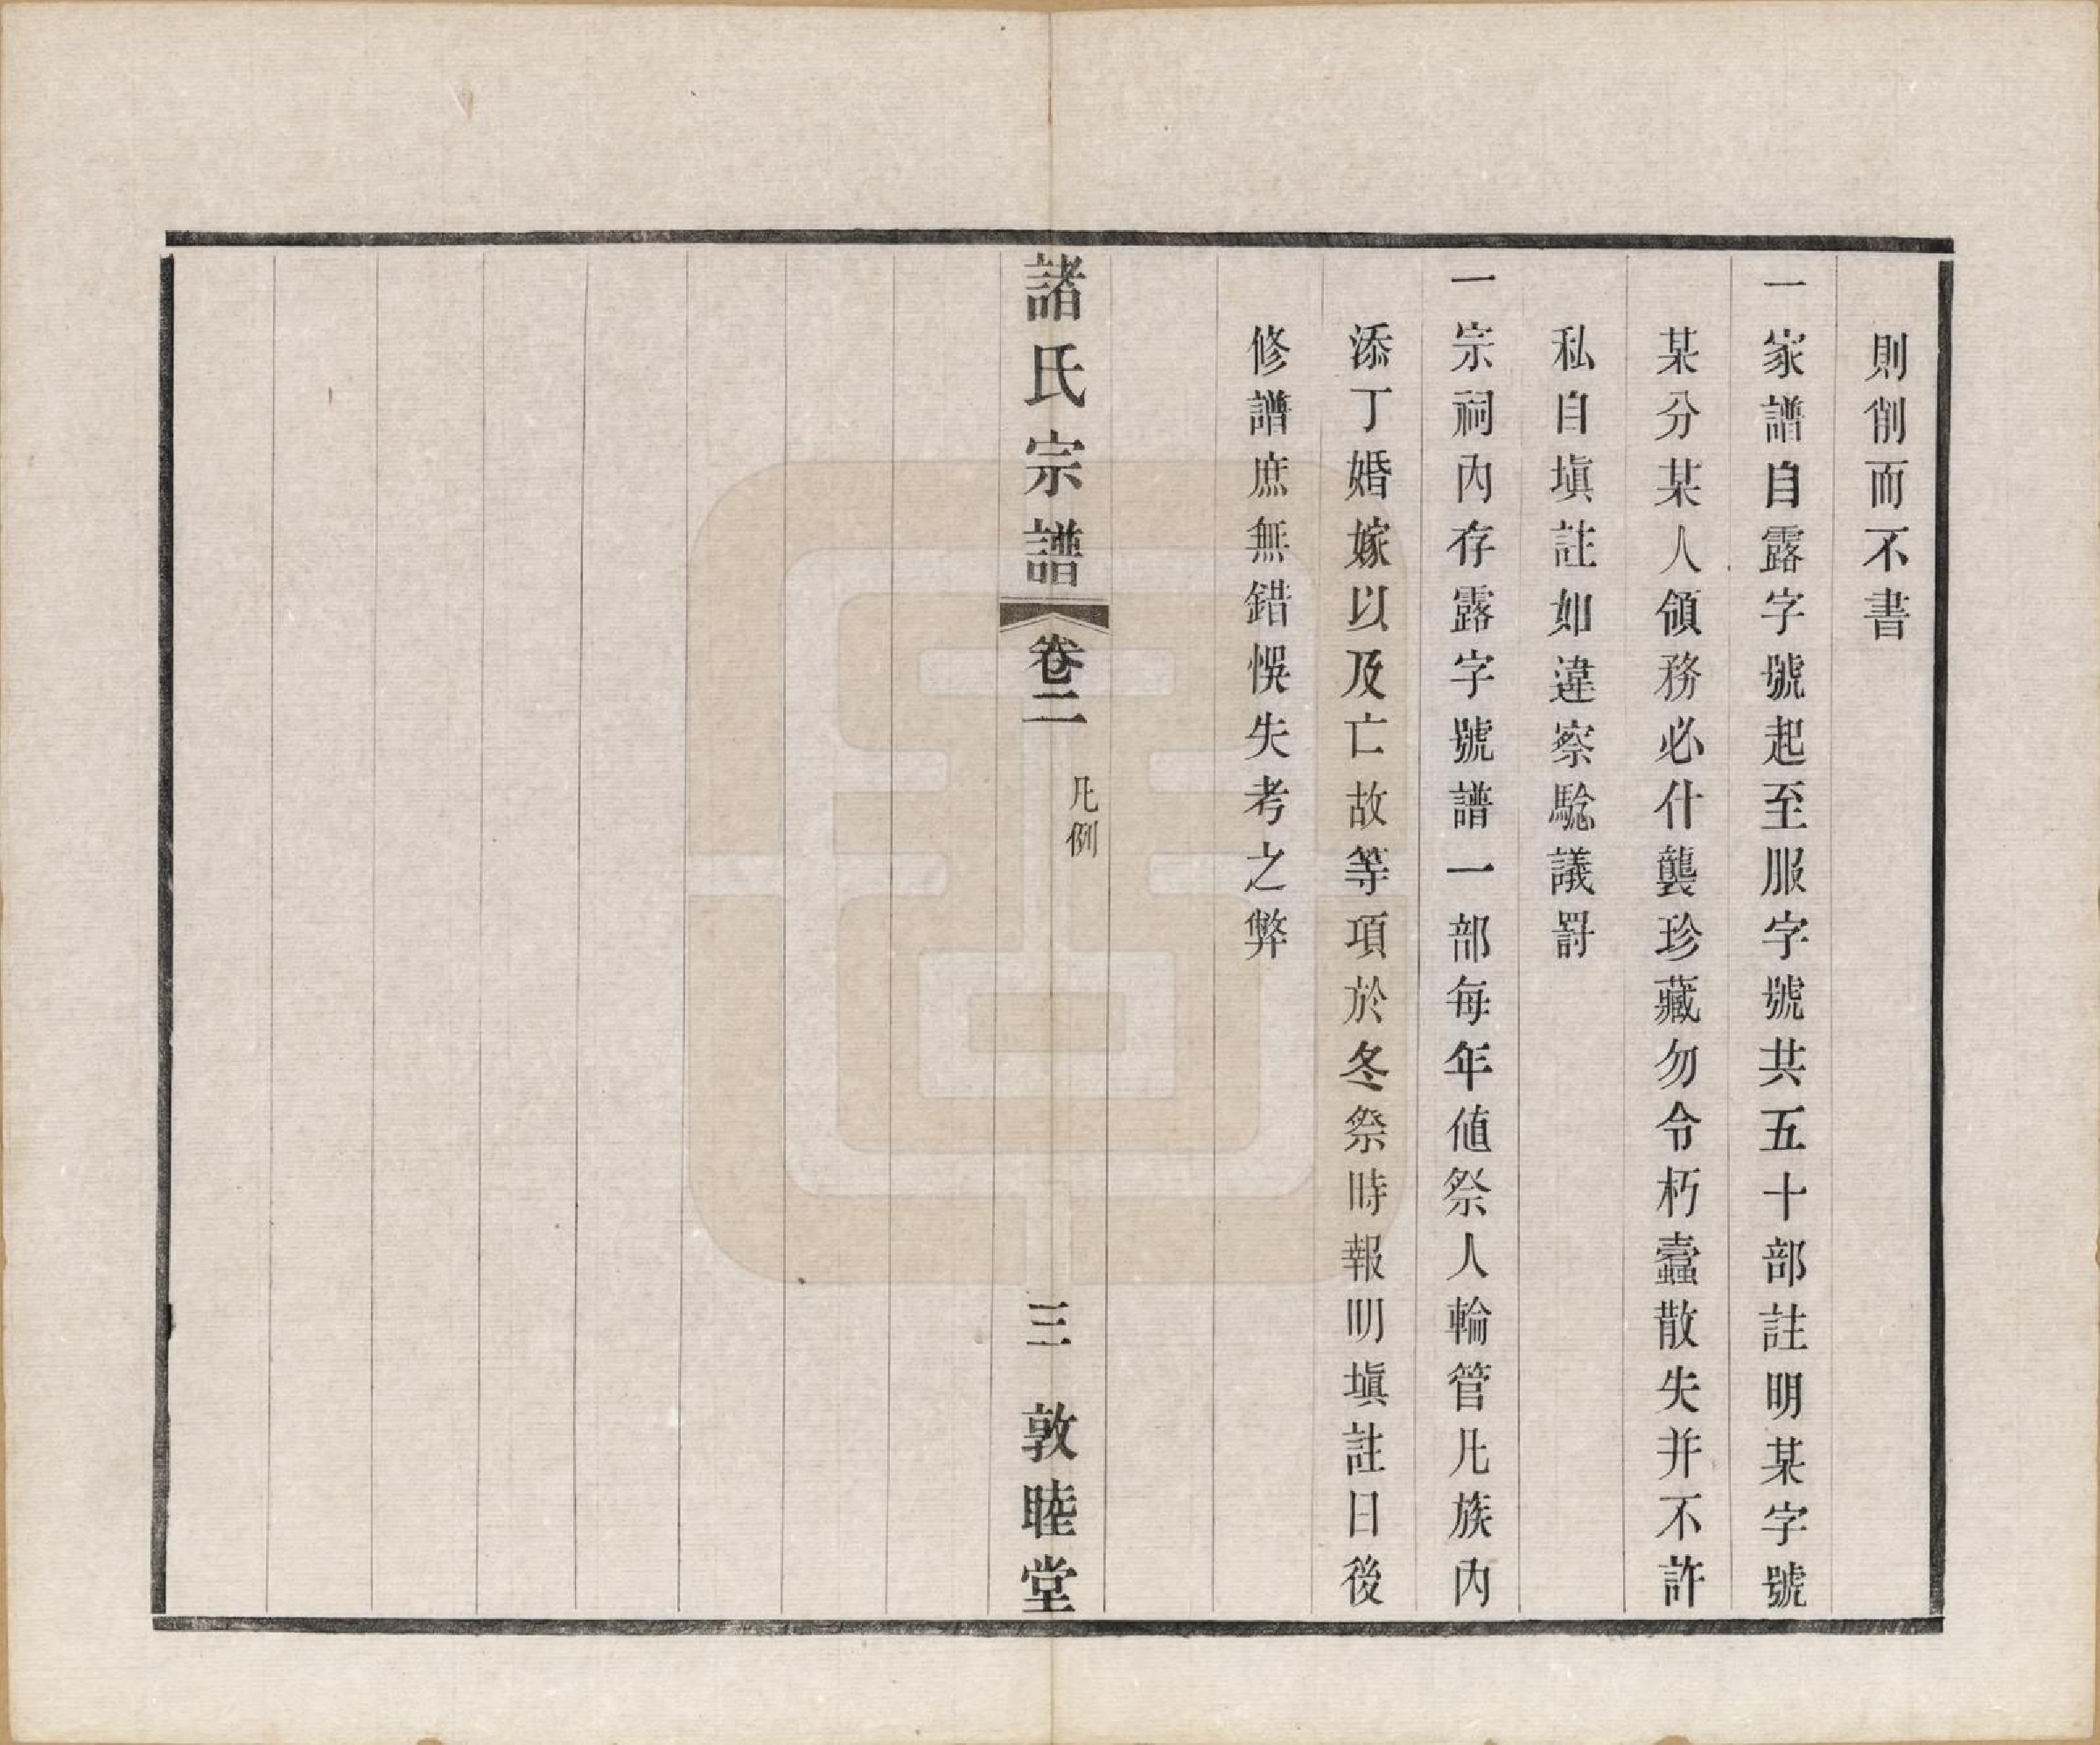 則削而不書
一家譜自露字號起至服字號共五十部註明某字號
某分某人領務必什襲珍藏勿令朽蠧散失并不許
私自塡註如違察騐議罸
一宗祠內存露字號譜一部每年値祭人輪管凡族內
添丁婚嫁以及亡故等項於冬祭時報明塡註日後
修譜庶無錯悞失考之弊
諸氏宗譜
卷二
凡例
三
敦睦堂